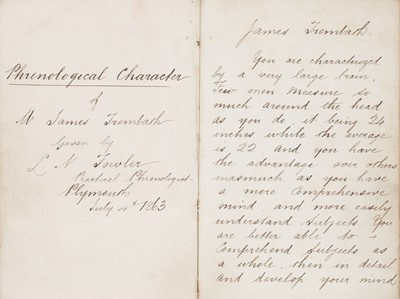 Phrenological Character
of
Mr James Trembath
Given by
L N Fowler
Practical Phrenologist
Plymouth
July 4th 1863
James Trembath.
You are characterized
by a very large brain.
Few men measure so
much around the head
as you do, it being 24
inches while the average
is 22 and you have
the advantage over others
inasmuch as you have
a more Comprehensive
mind and more easily
understand Subjects. You
are better able to
Comprehend Subjects as
a whole, then in detail
and develop your mind